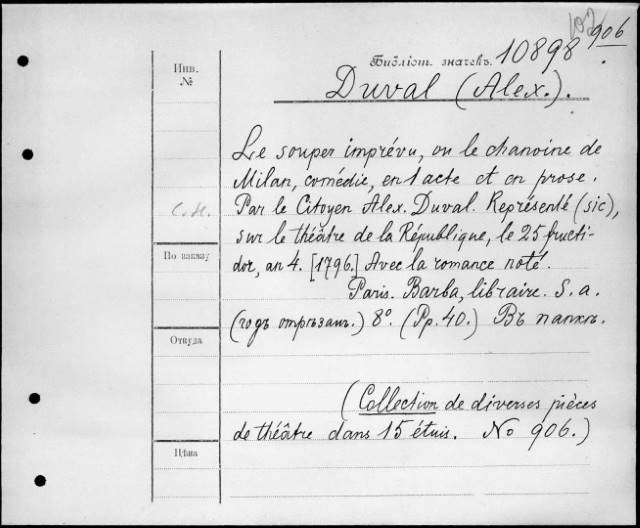 102 906
Библіот. значекъ. 10898
Инв. №
Duval (Alex.).
Le souper imprévu, ou le chanoine de
Milan, comédie, en 1 acte et en prose.
С.Н. Par le Citoyen Alex. Duval. Représenté (sic),
sur le théâtre de la République, le 25 fructi-
По заказу dor, an 4. [1796.] Avec la romance noté.
Paris. Barba, libraire. S. a.
(годъ отрѣзанъ.) 8º. (Pp. 40.) Въ папкѣ.
Откуда
(Collection de diverses pièces
de théâtre dans 15 étuis. No 906.)
Цѣна